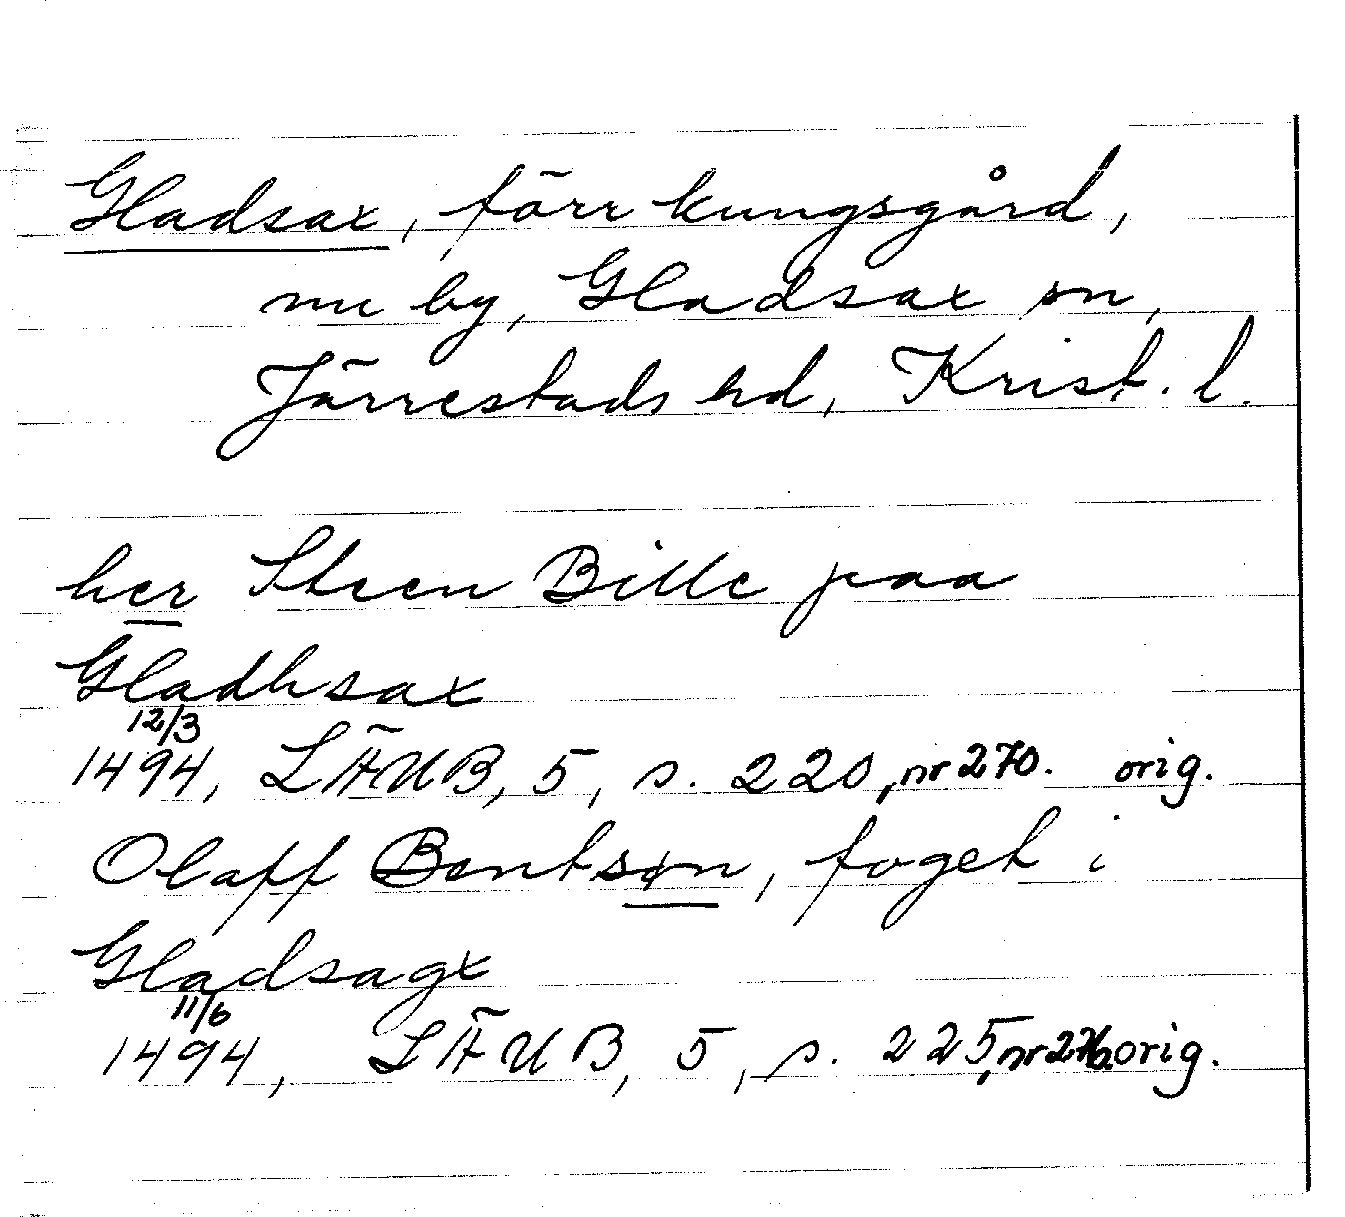 Gladsax, förr kungsgård,
nu by, Gladsax sn,
Järrestads hd, Krist. l.
her Steen Bille paa
Gladhsax
12/3
1494, LÄUB, 5, s. 220, nr 270. orig.
Olaff Bentsøn, foget i
Gladsagx
11/6
1494, LÄUB, 5, s. 225, nr 276. orig.